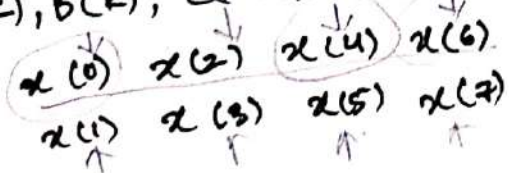 ), b(
x(0) x(2) x(4) x(6)
x(1) x(3) x(5) x(7)